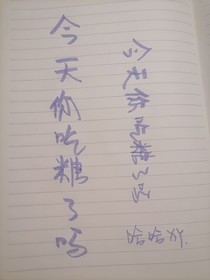 今天你吃糖了吗
今天你吃糖了吗
哈哈